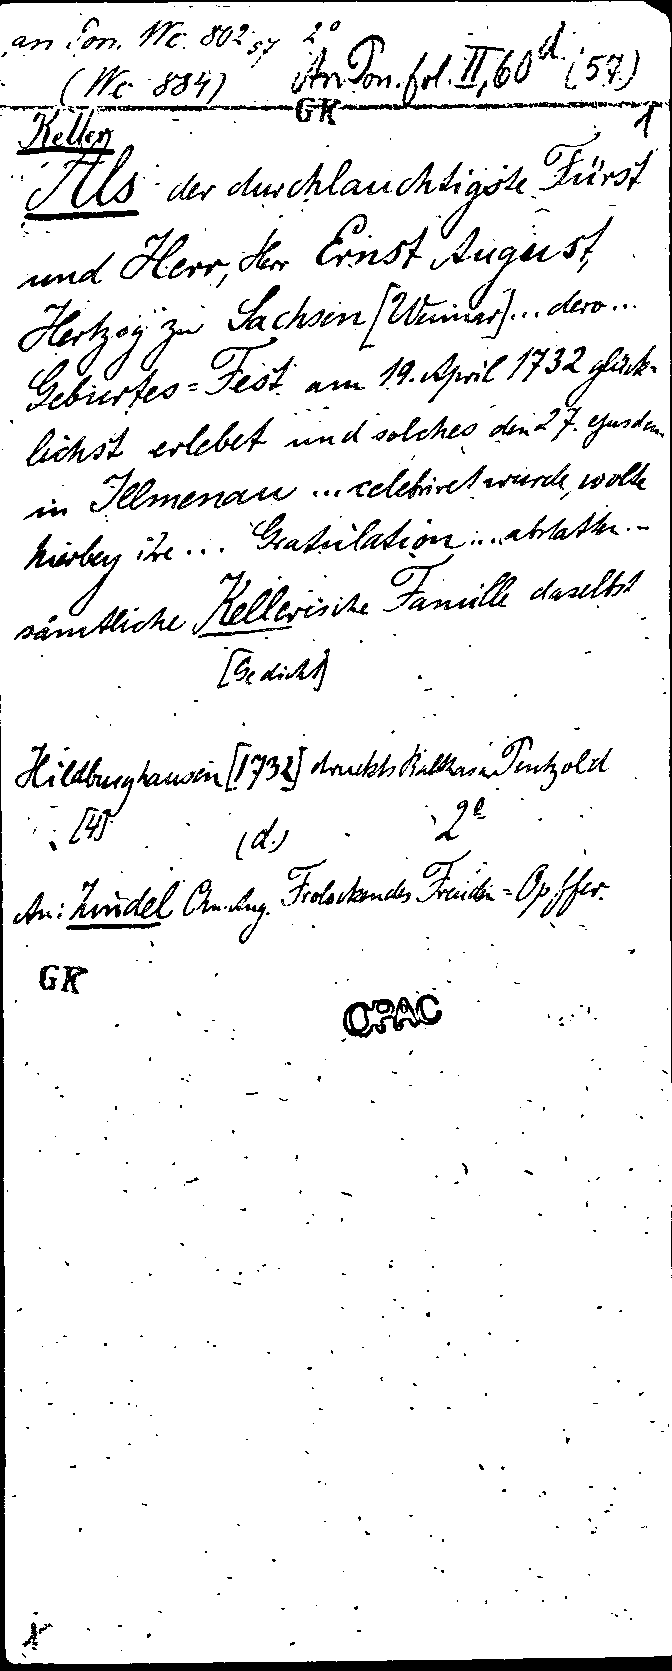 an Pon. Wc. 802 57 2°
(Wc 884) An Pon. fol. II, 60 d. (57)
GK
Keller
Als der durchlauchtigste Fürst
und Herr, Herr Ernst August,
Hertzog zu Sachsen [Weimar] ... dero ...
Geburtes=Fest am 19. April 1732 glück-
lichst erlebet und solches den 27. ejusdem
in Ilmenau ... celebriret wurde, wolte
hierbey ihre ... Gratulation ... abstatten ...
sämtliche Kellerische Familie daselbst
[Gedicht]
Hildburghausen [1732] druckts Balthasar Pentzold
[4] (d.) 2°
An: Zindel Chn. Aug. Frolockendes Freuden=Opffer.
GK
OPAC